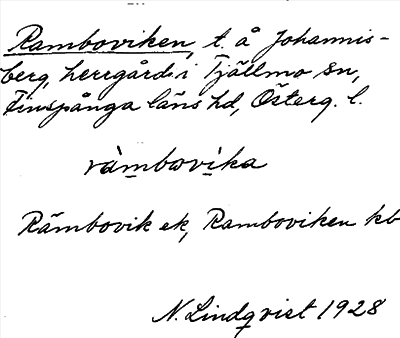 Ramboviken, t. å Johannis-
berg, herrgård i Tjällmo sn,
Finspånga läns hd, Österg. l.
ràmbovìka
Råmbovik ek, Ramboviken kb
N. Lindqvist 1928